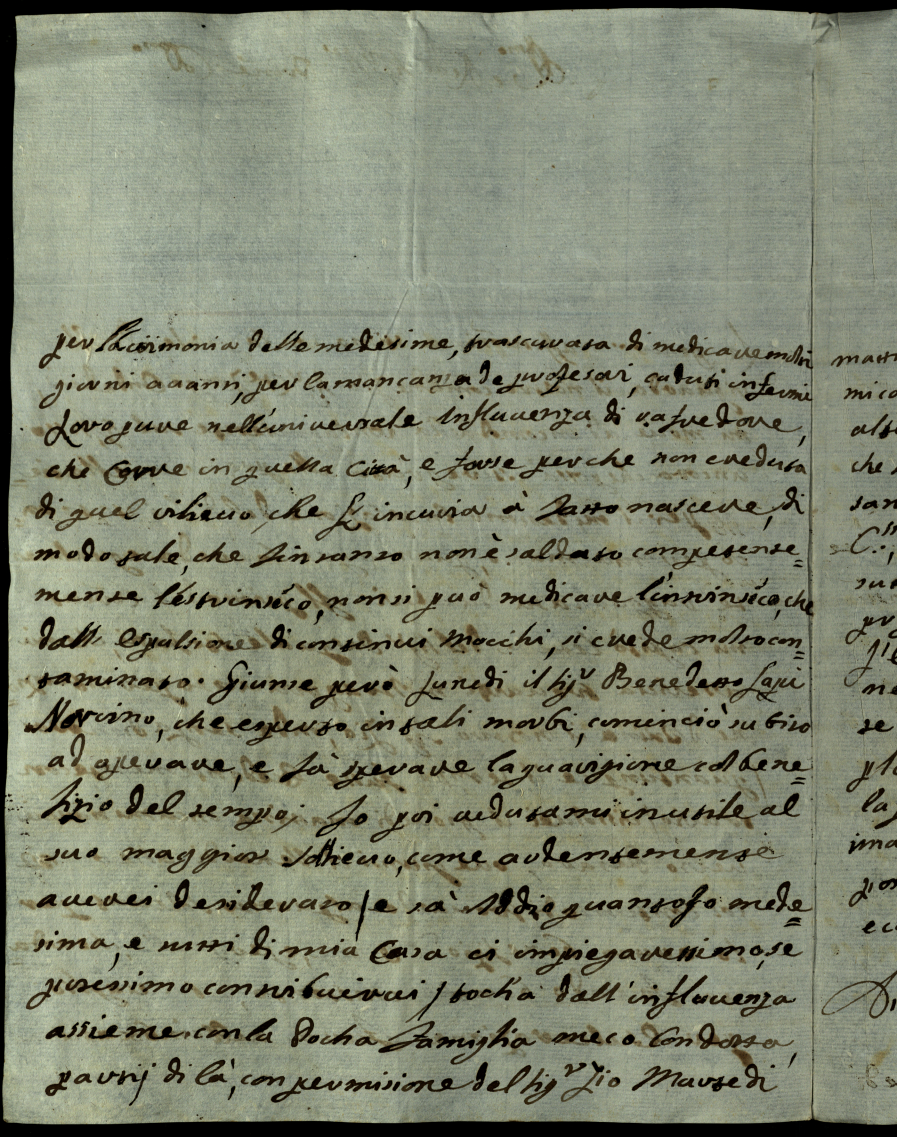 per l'acrimonia delle medesime, trascurata di medicare molti
giorni avanti, per la mancanza de profesori, caduti infermi
Loro pure nell'universale influuenza di rafredore,
che Corre in quella Città, e forse perche non creduta
di quel rilieuo, che si incuria à fatto nascere, di
modo tale, che sin tanto non è saldato competente=
mente l'estrinsico, non si può medicare l'intrinsico, che
dall' espulsione di continui mocchi, si crede molto con=
taminato. Giunse però Lunedi il Sig.r Benedetto Lapi
Norcino, che esperto in tali morbi, cominciò subito
ad operare, e fà sperare la guarigione col bene=
fizio del tempo; Io poi vedutami inutile al
suo maggior sollieuo, come ardentemente
averei desiderato / e sà Iddio quanto Io mede=
sima, e tutti di mia Casa ci impiegaressimo, se
potessimo contribuirui / tocha dall' influuenza
assieme con la Pocha famiglia meco Condotta,
partij di là, con permisione del Sig.r Zio Martedi